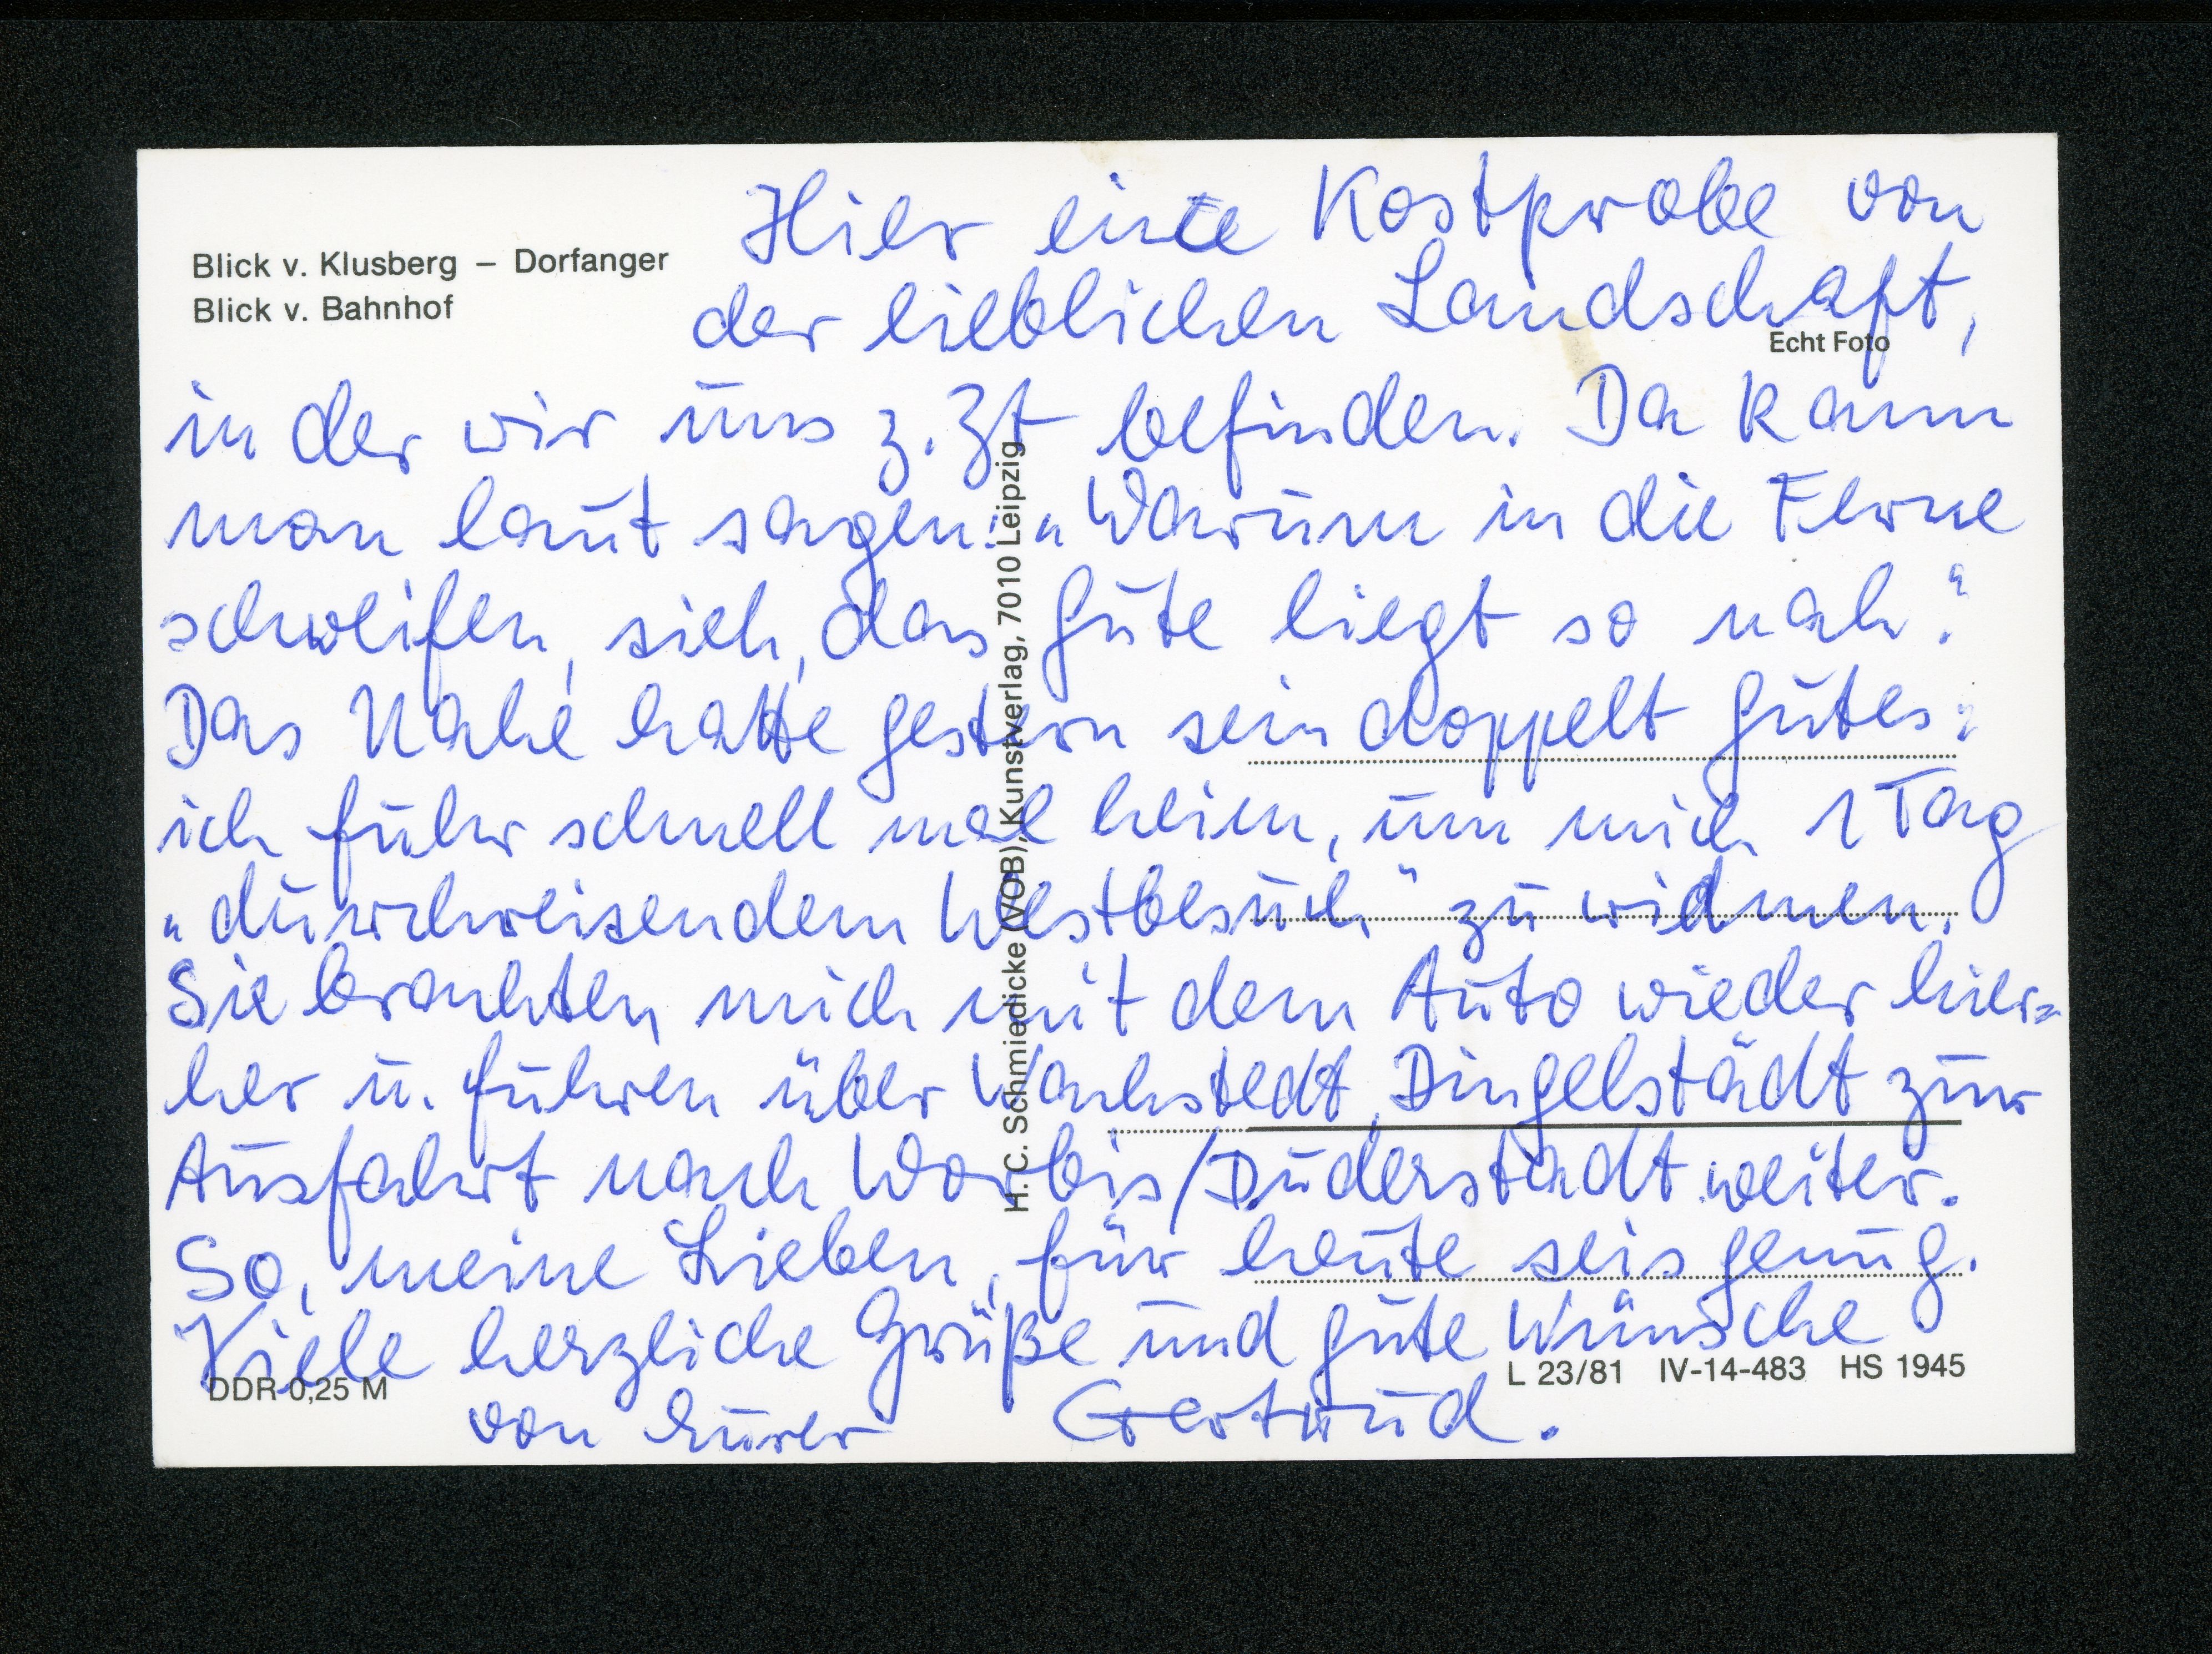 Blick v. Klusberg – Dorfanger
Blick v. Bahnhof
Echt Foto
Hier eine Kostprobe von
der lieblichen Landschaft,
in der wir uns z. Zt befinden. Da kann
man laut sagen: „Warum in die Ferne
schweifen, sieh, das Gute liegt so nah."
Das Nahe hatte gestern sein doppelt Gutes:
ich fuhr schnell mal heim, um mich 1 Tag
„durchreisendem Westbesuch" zu widmen.
Sie brachten mich mit dem Auto wieder hier=
her u. fuhren über Wachstedt, Dingelstädt zur
Ausfahrt nach Worbis/Duderstadt weiter.
So, meine Lieben, für heute seis genug.
Viele herzliche Grüße und gute Wünsche
von Eurer Gertrud.
H. C. Schmiedicke (VOB), Kunstverlag, 7010 Leipzig
DDR 0,25 M
L 23/81 IV-14-483 HS 1945